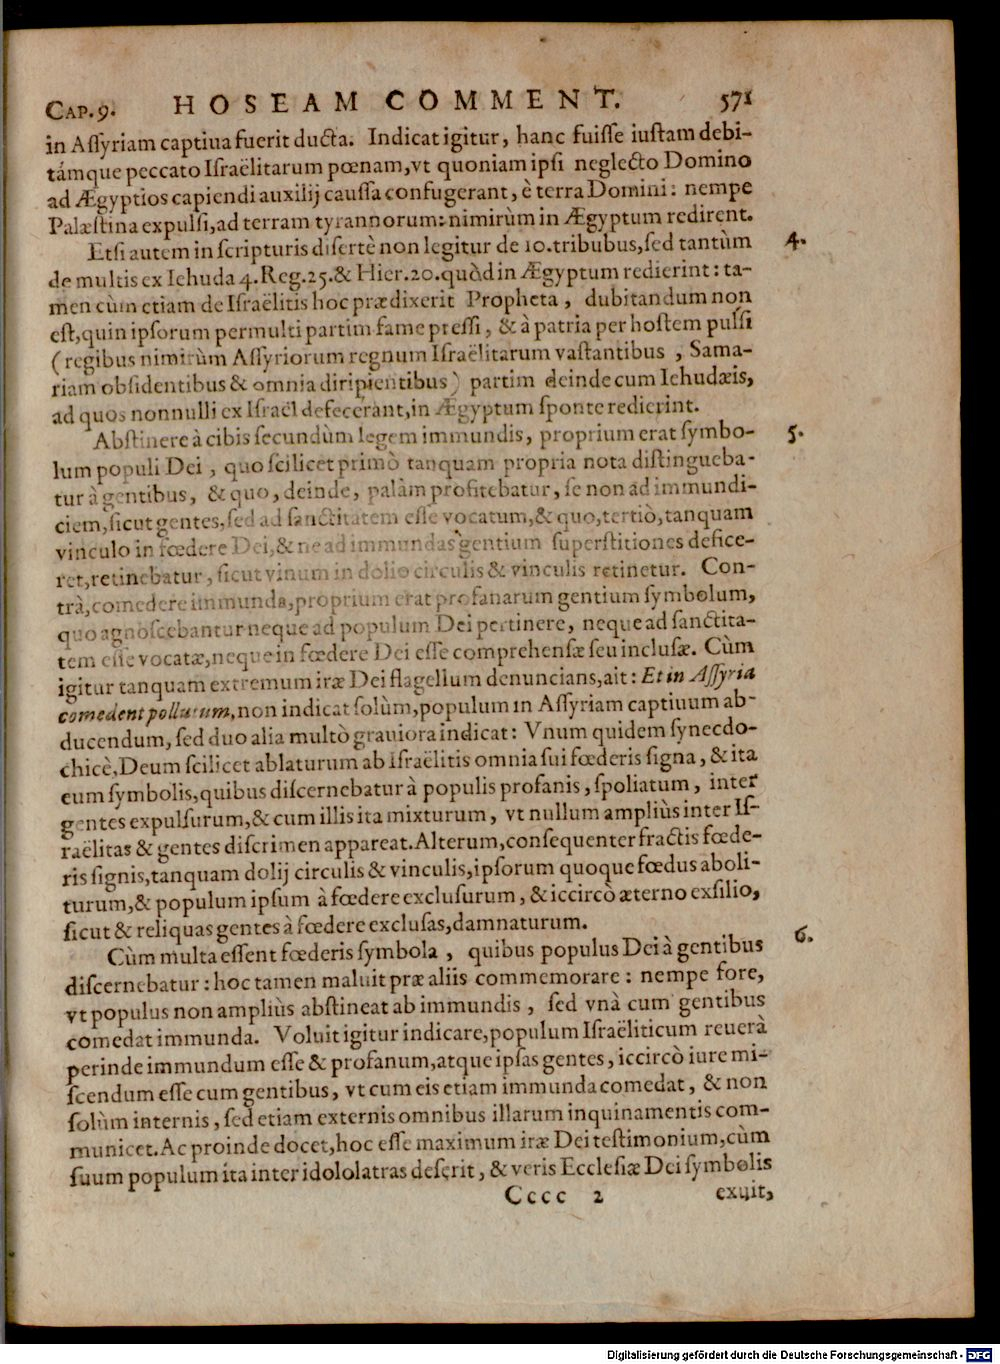 CAP. 9. HOSEAM COMMENT. 571
in Aſſyriam captiua fuerit ducta. Indicat igitur, hanc fuiſſe iuſtam debi-
támque peccato Iſraëlitarum pœnam, vt quoniam ipſi neglecto Domino
ad Ægyptios capiendi auxilij cauſſa confugerant, è terra Domini: nempe
Palæſtina expulſi, ad terram tyrannorum: nimirùm in Ægyptum redirent.
Etſi autem in ſcripturis diſertè non legitur de 10. tribubus, ſed tantùm 4.
de multis ex Iehuda 4. Reg. 25. & Hier. 20. quòd in Ægyptum redierint: ta-
men cùm etiam de Iſraëlitis hoc prædixerit Propheta, dubitandum non
eſt, quin ipſorum permulti partim fame preſſi, & à patria per hoſtem pulſi
(regibus nimirùm Aſſyriorum regnum Iſraëlitarum vaſtantibus, Sama-
riam obſidentibus & omnia diripientibus) partim deinde cum Iehudæis,
ad quos nonnulli ex Iſraël defecerant, in Ægyptum ſponte redierint.
Abſtinere à cibis ſecundùm legem immundis, proprium erat ſymbo- 5.
lum populi Dei, quo ſcilicet primò tanquam propria nota diſtingueba-
tur à gentibus, & quo, deinde, palàm profitebatur, ſe non ad immundi-
ciem, ſicut gentes, ſed ad ſanctitatem eſſe vocatum, & quo, tertiò, tanquam
vinculo in fœdere Dei, & ne ad immundas gentium ſuperſtitiones defice-
ret, retinebatur, ſicut vinum in dolio circulis & vinculis retinetur. Con-
trà, comedere immunda, proprium erat profanarum gentium ſymbolum,
quo agnoſcebantur neque ad populum Dei pertinere, neque ad ſanctita-
tem eſſe vocatæ, neque in fœdere Dei eſſe comprehenſæ ſeu incluſæ. Cùm
igitur tanquam extremum iræ Dei flagellum denuncians, ait: Et in Aſſyria
comedent pollutum, non indicat ſolùm, populum in Aſſyriam captiuum ab-
ducendum, ſed duo alia multò grauiora indicat: Vnum quidem ſynecdo-
chicè, Deum ſcilicet ablaturum ab Iſraëlitis omnia ſui fœderis ſigna, & ita
eum ſymbolis, quibus diſcernebatur à populis profanis, ſpoliatum, inter
gentes expulſurum, & cum illis ita mixturum, vt nullum ampliùs inter Iſ-
raëlitas & gentes diſcrimen appareat. Alterum, conſequenter fractis fœde-
ris ſignis, tanquam dolij circulis & vinculis, ipſorum quoque fœdus aboli-
turum, & populum ipſum à fœdere excluſurum, & iccircò æterno exſilio,
ſicut & reliquas gentes à fœdere excluſas, damnaturum.
Cùm multa eſſent fœderis ſymbola, quibus populus Dei à gentibus 6.
diſcernebatur: hoc tamen maluit præ aliis commemorare: nempe fore,
vt populus non ampliùs abſtineat ab immundis, ſed vnà cum gentibus
comedat immunda. Voluit igitur indicare, populum Iſraëliticum reuerà
perinde immundum eſſe & profanum, atque ipſas gentes, iccircò iure mi-
ſcendum eſſe cum gentibus, vt cum eis etiam immunda comedat, & non
ſolùm internis, ſed etiam externis omnibus illarum inquinamentis com-
municet. Ac proinde docet, hoc eſſe maximum iræ Dei teſtimonium, cùm
ſuum populum ita inter idololatras deſerit, & veris Eccleſiæ Dei ſymbolis
Cccc 2 exuit,
Digitalisierung gefördert durch die Deutsche Forschungsgemeinschaft - DFG